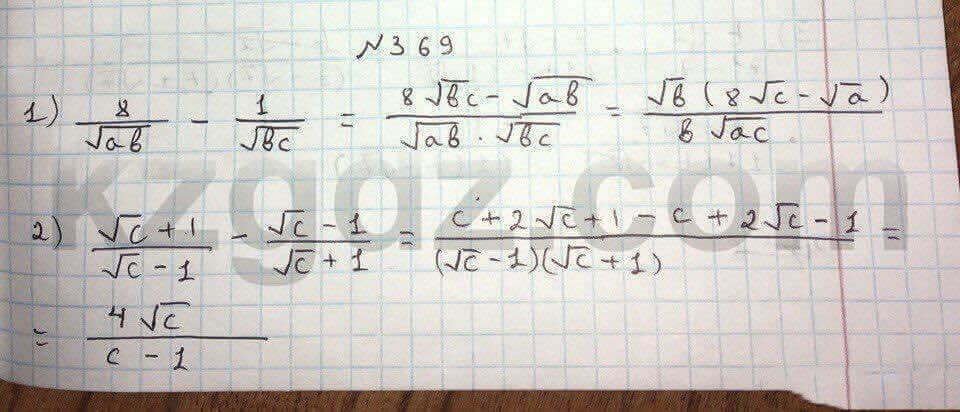 №369
1) 8/√ab - 1/√bc = (8√bc - √ab)/(√ab · √bc) = √b(8√c - √a)/(b√ac)
kzgdz.com
2) (√c + 1)/(√c - 1) - (√c - 1)/(√c + 1) = (c + 2√c + 1 - c + 2√c - 1)/((√c - 1)(√c + 1)) =
= 4√c/(c - 1)